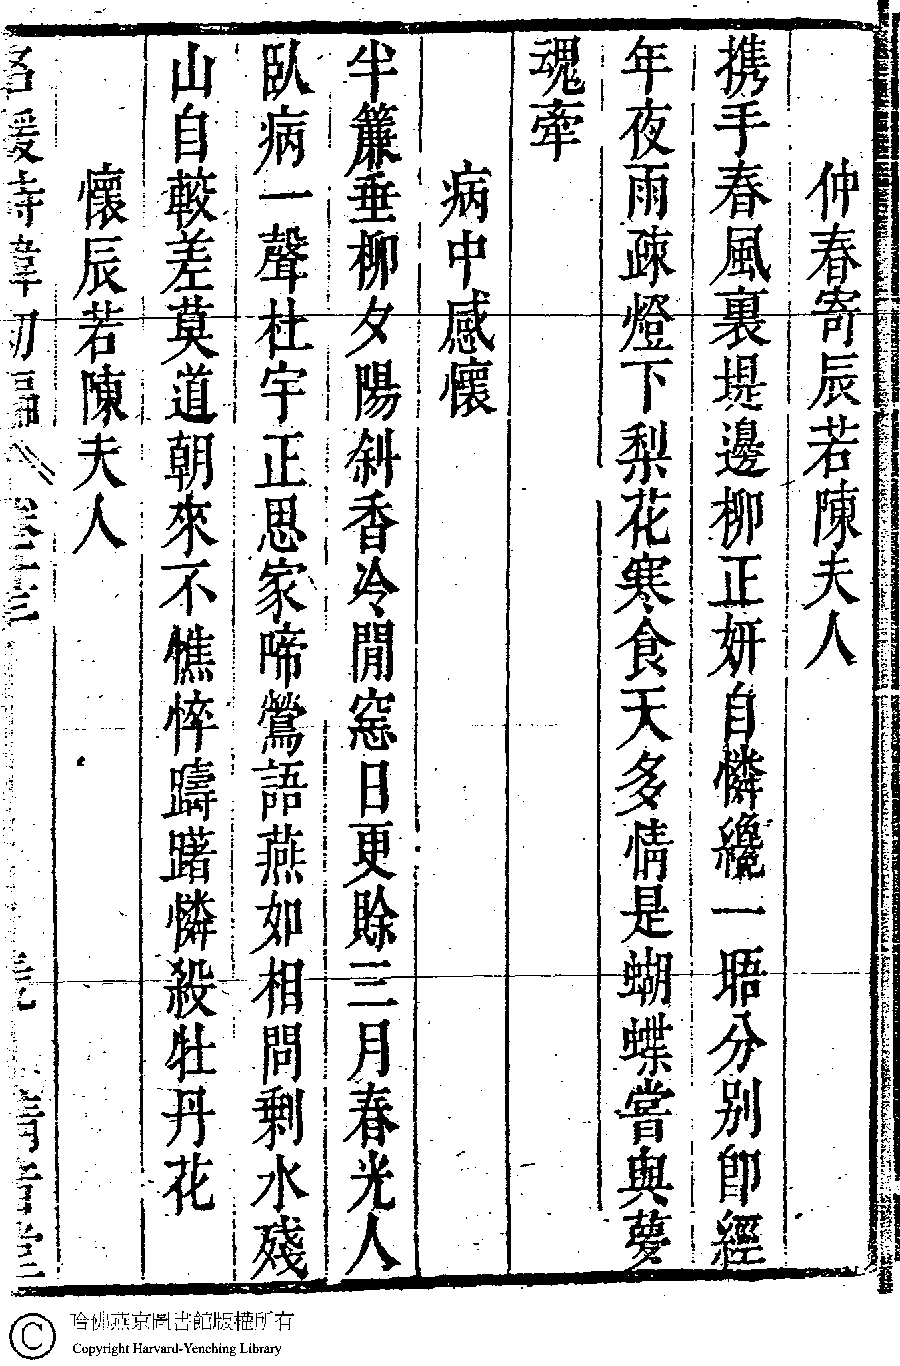 仲春寄辰若陳夫人
携手春風裏堤邊柳正妍自憐纔一晤分别卽經
年夜雨疎燈下梨花寒食天多情是蝴蝶嘗與夢
魂牽
病中感懷
半簾垂柳夕陽斜香冷閒窓日更賖三月春光人
臥病一聲杜宇正思家啼鶯語燕如相問剩水殘
山自較差莫道朝來不憔悴躊躇憐殺牡丹花
懷辰若陳夫人
名媛詩緯初編 卷十三 清音堂
哈佛燕京圖書館版權所有
Copyright Harvard-Yenching Library